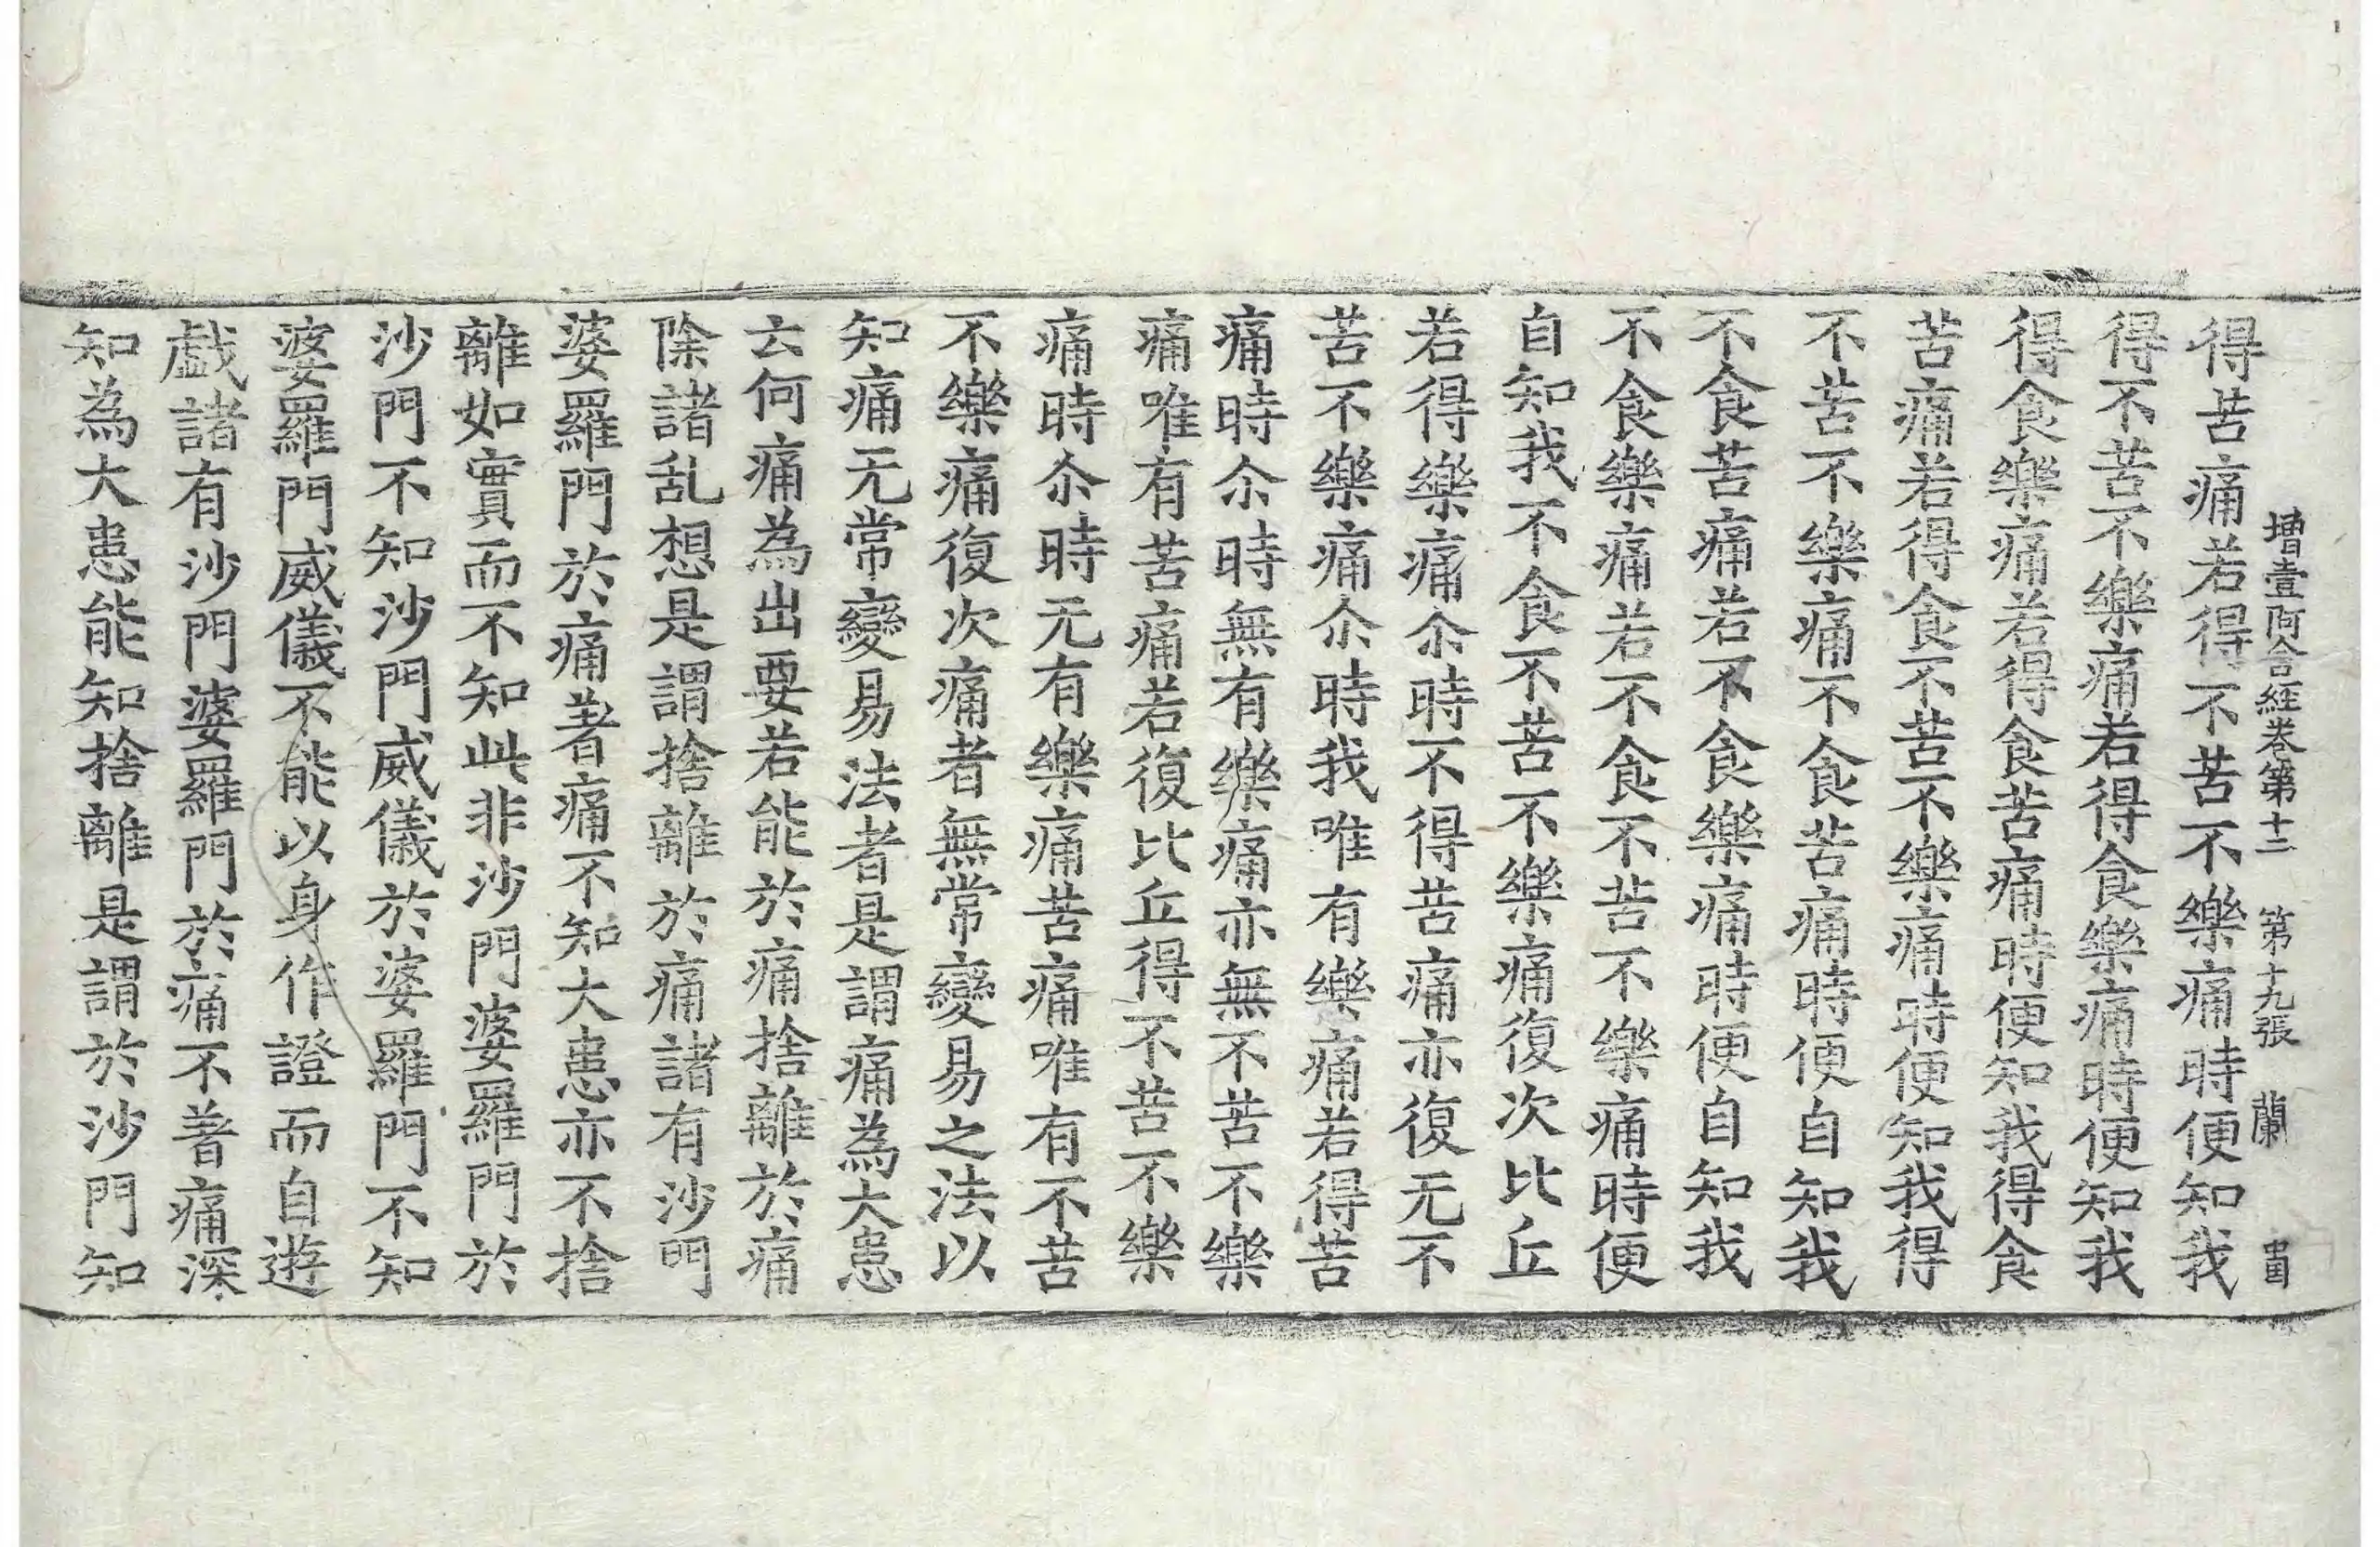 增壹阿含經卷第十二 第十九張 蘭
得苦痛若得不苦不樂痛時便知我
得不苦不樂痛若得食樂痛時便知我
得食樂痛若得食苦痛時便知我得食
苦痛若得食不苦不樂痛時便知我得
不苦不樂痛不食苦痛時便自知我
不食苦痛若不食樂痛時便自知我
不食樂痛若不食不苦不樂痛時便
自知我不食不苦不樂痛復次比丘
若得樂痛尒時不得苦痛亦復无不
苦不樂痛尒時我唯有樂痛若得苦
痛時尒時無有樂痛亦無不苦不樂
痛唯有苦痛若復比丘得不苦不樂
痛時尒時无有樂痛苦痛唯有不苦
不樂痛復次痛者無常變易之法以
知痛无常變易法者是謂痛為大患
云何痛為出要若能於痛捨離於痛
除諸乱想是謂捨離於痛諸有沙門
婆羅門於痛著痛不知大患亦不捨
離如實而不知此非沙門婆羅門於
沙門不知沙門威儀於婆羅門不知
婆羅門威儀不能以身作證而自遊
戱諸有沙門婆羅門於痛不著痛深
知為大患能知捨離是謂於沙門知